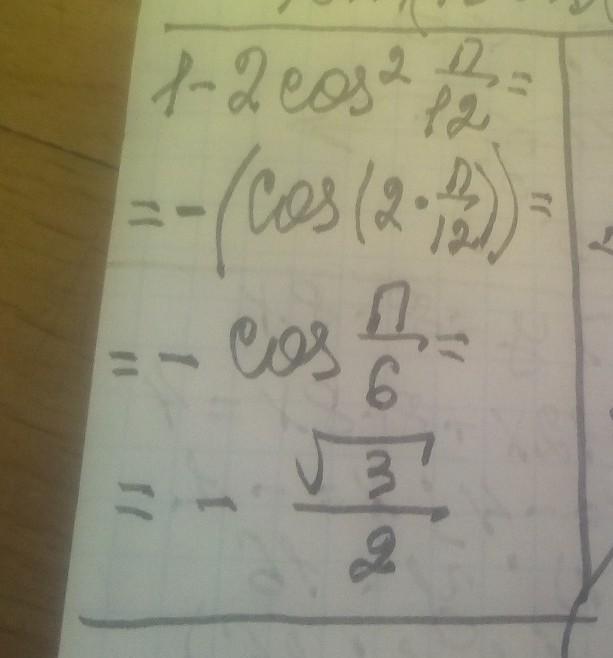 1-2cos² π/12 =
= -(cos(2·π/12)) =
= - cos π/6 =
= - √3/2